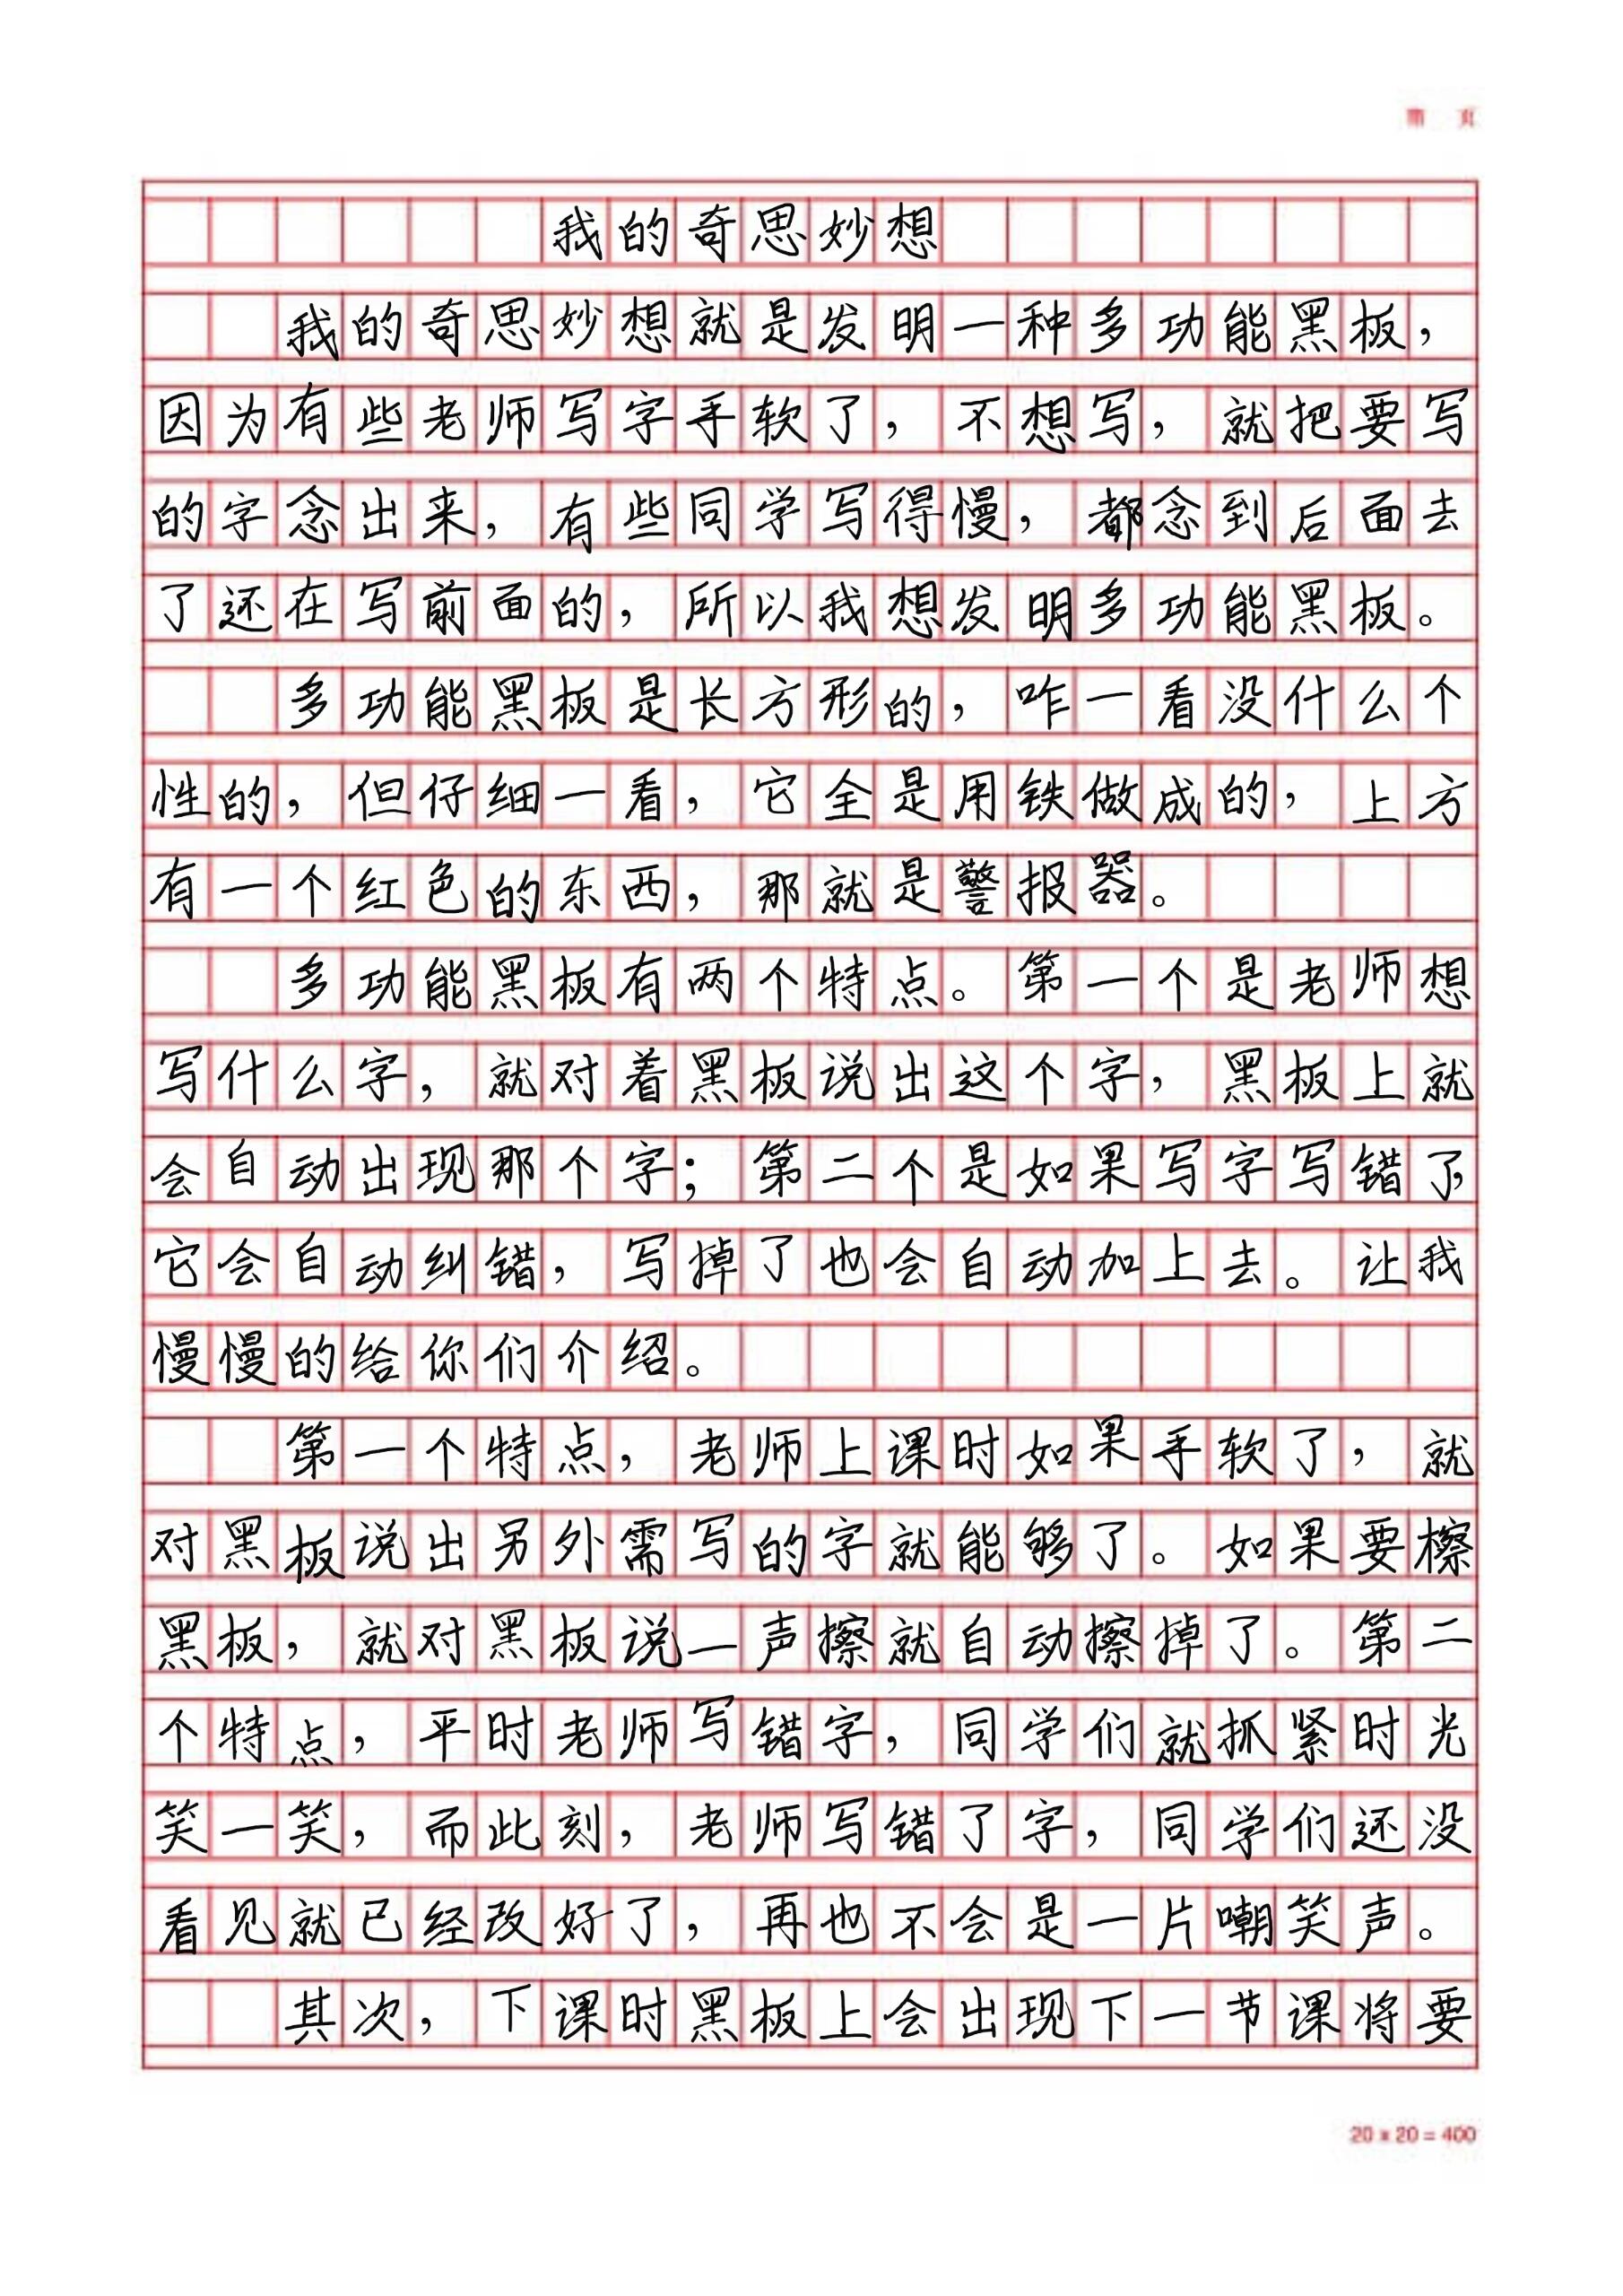 第 页
我的奇思妙想
我的奇思妙想就是发明一种多功能黑板，
因为有些老师写字手软了，不想写，就把要写
的字念出来，有些同学写得慢，都念到后面去
了还在写前面的，所以我想发明多功能黑板。
多功能黑板是长方形的，咋一看没什么个
性的，但仔细一看，它全是用铁做成的，上方
有一个红色的东西，那就是警报器。
多功能黑板有两个特点。第一个是老师想
写什么字，就对着黑板说出这个字，黑板上就
会自动出现那个字；第二个是如果写字写错了，
它会自动纠错，写掉了也会自动加上去。让我
慢慢的给你们介绍。
第一个特点，老师上课时如果手软了，就
对黑板说出另外需写的字就能够了。如果要檫
黑板，就对黑板说一声擦就自动擦掉了。第二
个特点，平时老师写错字，同学们就抓紧时光
笑一笑，而此刻，老师写错了字，同学们还没
看见就已经改好了，再也不会是一片嘲笑声。
其次，下课时黑板上会出现下一节课将要
20 x 20 = 400